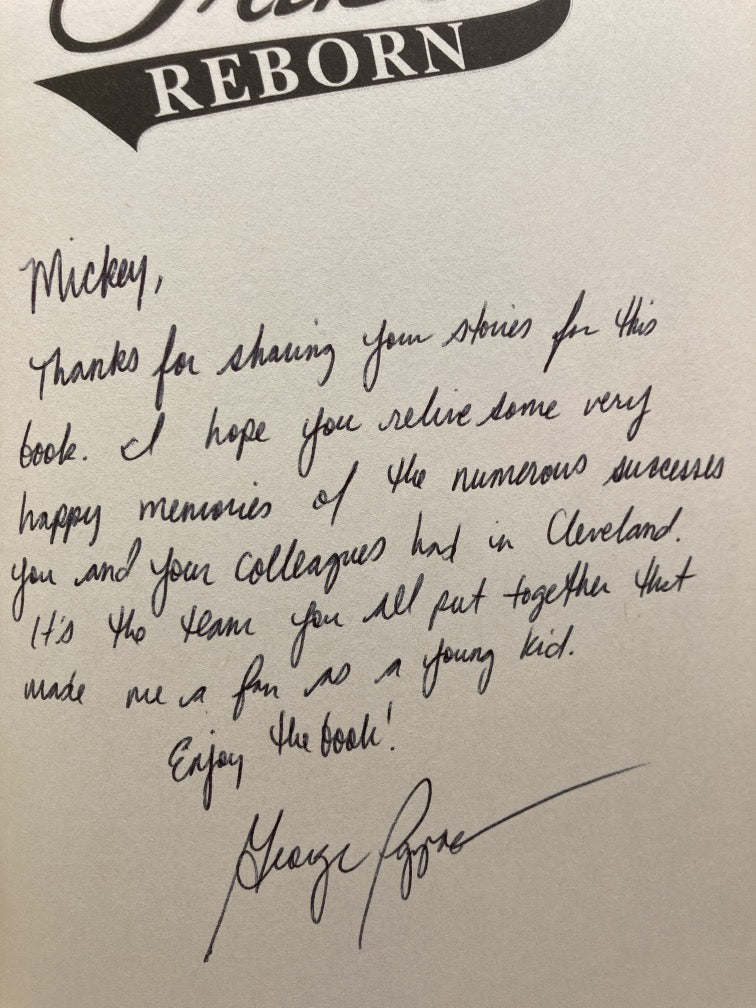 REBORN
Mickey,
Thanks for sharing your stories for this
book. I hope you relive some very
happy memories of the numerous successes
you and your colleagues had in Cleveland.
It's the team you all put together that
made me a fan as a young kid.
Enjoy the book!
George